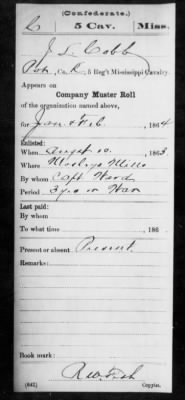 (Confederate.)
C 5 Cav. Miss.
J. L. Cobb
Pvt, Co. K, 5 Reg't Mississippi Cavalry.
Appears on
Company Muster Roll
of the organization named above,
for Jan & Feb, 1864
Enlisted:
When Aug 10, 1863
Where
By whom Capt Ward
Period 3 yrs or War
Last paid:
By whom
To what time , 186
Present or absent Present
Remarks:
Book mark:
(642) Copyist.